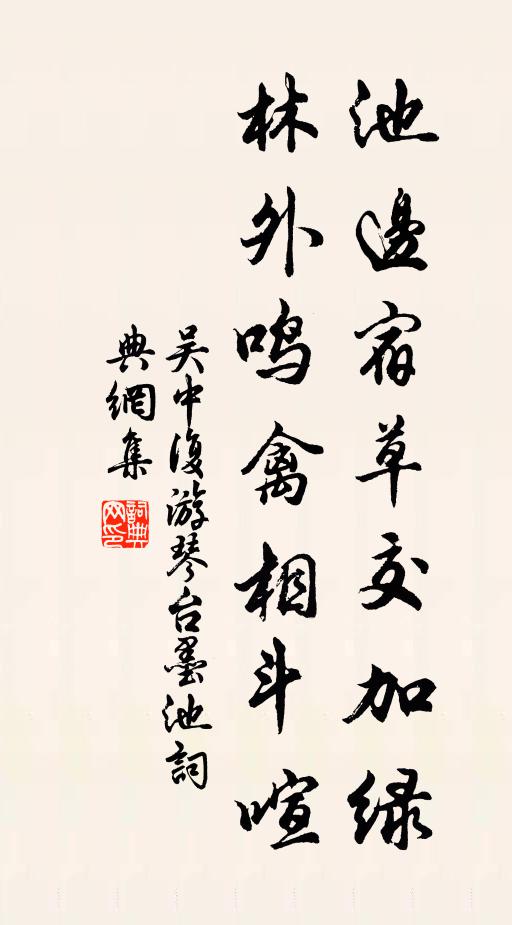 池邊宿草交加绿
林外鸣禽相斗喧
吴中復游琴台墨池詞
典網集
詞典网印